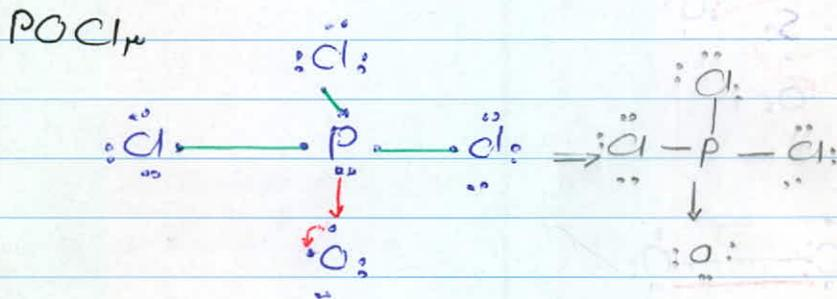 POCl۳
:Cl: :Cl:
:Cl P Cl: ⇒ :Cl — P — Cl:
O: :O: